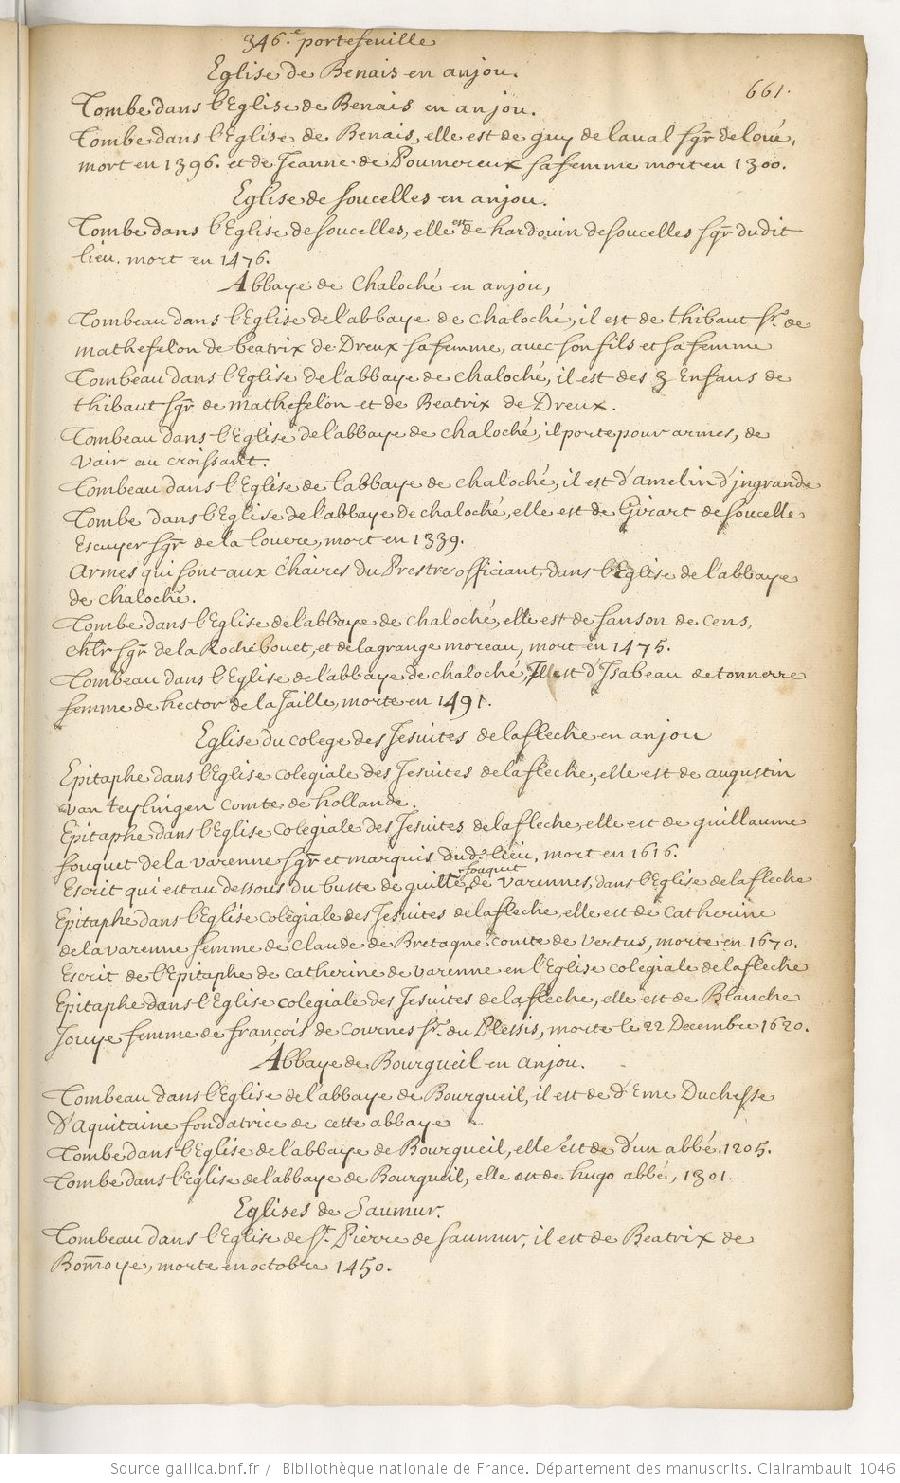 346.e portefeuille
Eglise de Benais en anjou.
661.
Tombe dans l'Eglise de Benais en anjou.
Tombe dans l'Eglise de Benais, elle est de guy de laval sgr de loué,
mort en 1396. et de Jeanne de Poumereux sa femme mort en 1300.
Eglise de soucelles en anjou.
Tombe dans l'Eglise de soucelles, elle est de hardouin de soucelles sgr du dit
lieu. mort en 1476.
Abbaye de Chaloché en anjou,
Tombeau dans l'Eglise de l'abbaye de chaloché, il est de thibaut sr. de
mathefelon de beatrix de Dreux sa femme, avec son fils et sa femme
Tombeau dans l'Eglise de l'abbaye de chaloché, il est des 3 Enfans de
thibaut sgr de mathefelon et de Beatrix de Dreux.
Tombeau dans l'Eglise de l'abbaye de chaloché, il porte pour armes, de
vair au croissant.
Tombeau dans l'Eglise de l'abbaye de chaloché, il est d'amelin d'jngrande
Tombe dans l'Eglise de l'abbaye de chaloché, elle est de Girart de soucelles
Escuyer sgr de la louere, mort en 1339.
Armes qui sont aux Chaires du Prestre officiant, dans l'Eglise de l'abbaye
de chaloché.
Tombe dans l'Eglise de l'abbaye de chaloché, elle est de sanson de cens,
chlr sgr de la Rochibouet, et de la grange moreau, mort en 1475.
Tombeau dans l'Eglise de l'abbaye de chaloché, Il est d'Isabeau de tonnerre
femme de hector de la Jaille, morte en 1491.
Eglise du colege des Jesuites de la fleche en anjou
Epitaphe dans l'Eglise colegiale des Jesuites de la fleche, elle est de augustin
van teylingen comte de hollande.
Epitaphe dans l'Eglise colegiale des Jesuites de la fleche, elle est de guillaume
fouquet de la varenne sgr et marquis dud. lieu, mort en 1616.
Escrit qui est au dessous du buste de guille. fouquet de varennes, dans l'Eglise de la fleche
Epitaphe dans l'Eglise colegiale des Jesuites de la fleche, elle est de Catherine
de la varenne femme de Claude de Bretagne comte de Vertus, morte en 1670.
Escrit de l'Epitaphe de catherine de varenne en l'Eglise colegiale de la fleche
Epitaphe dans l'Eglise colegiale des Jesuites de la fleche, elle est de Blanche
Jouye femme de françois de Cournes sr. du Plessis, morte le 22 Decembre 1620.
Abbaye de Bourgueil en anjou.
Tombeau dans l'Eglise de l'abbaye de Bourgueil, il est de d'Eme Duchesse
D'Aquitaine fondatrice de cette abbaye
Tombe dans l'Eglise de l'abbaye de Bourgueil, elle est de d'un abbé 1205.
Tombe dans l'Eglise de l'abbaye de Bourgueil, elle est de hugo abbé, 1301.
Eglises de Saumur.
Tombeau dans l'Eglise de St. Pierre de saumur, il est de Beatrix de
Bom̄oye, morte en octobre 1450.
Source gallica.bnf.fr / Bibliothèque nationale de France. Département des manuscrits. Clairambault 1046